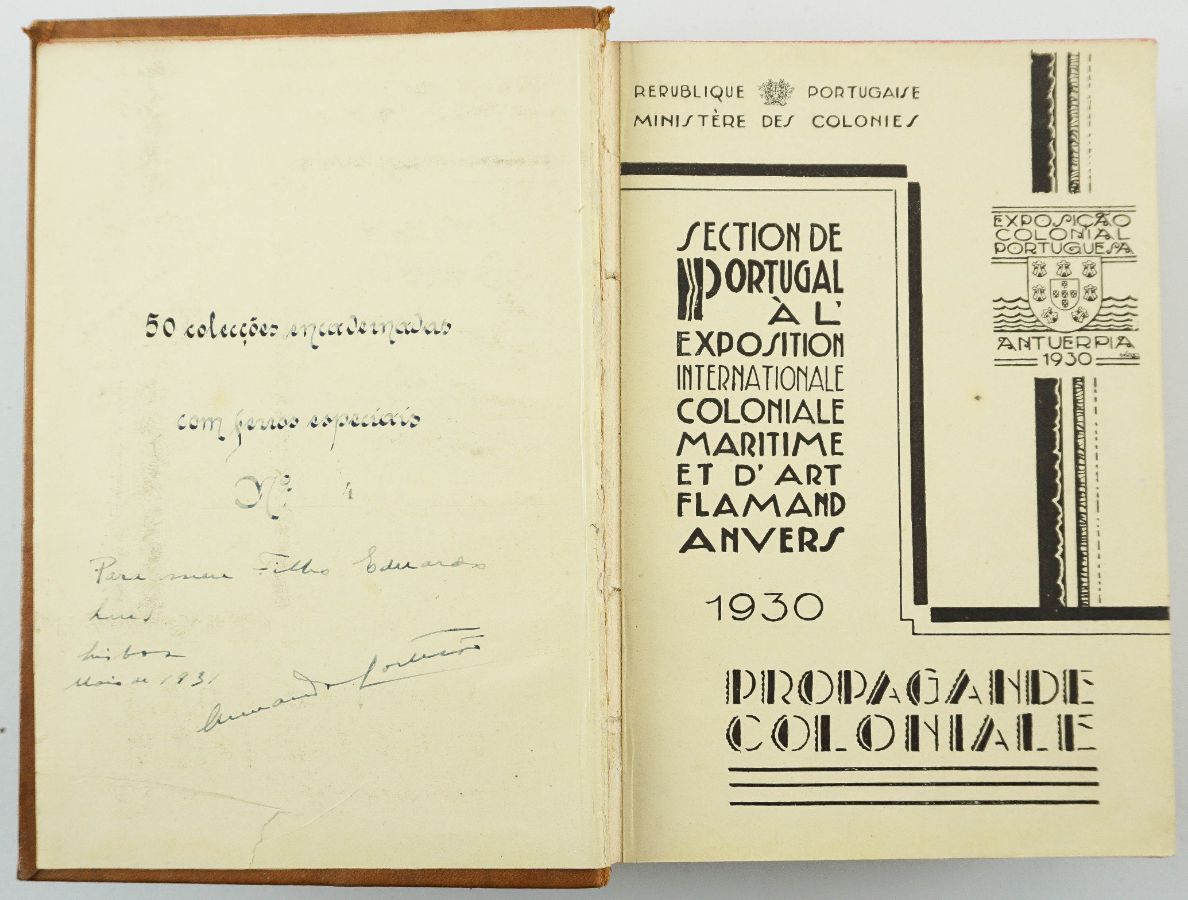 50 colecções encadernadas
com ferros especiais
Nº 4
Para meu Filho Eduardo
Luís
Lisboa
Maio de 1931
Armando Cortesão
REPUBLIQUE PORTUGAISE
MINISTÈRE DES COLONIES
SECTION DE
PORTUGAL
À L'
EXPOSITION
INTERNATIONALE
COLONIALE
MARITIME
ET D'ART
FLAMAND
ANVERS
1930
EXPOSIÇÃO
COLONIAL
PORTUGUESA
ANTUERPIA
1930
PROPAGANDE
COLONIALE